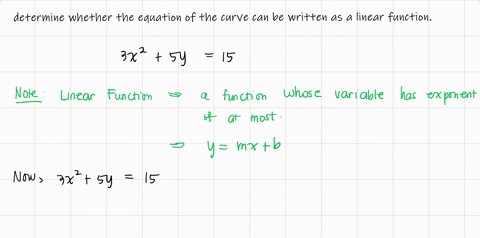 determine whether the equation of the curve can be written as a linear function.
3x² + 5y = 15
Note: Linear Function ⇒ a function whose variable has exponent
at most.
⇒ y = mx + b
Now, 3x² + 5y = 15